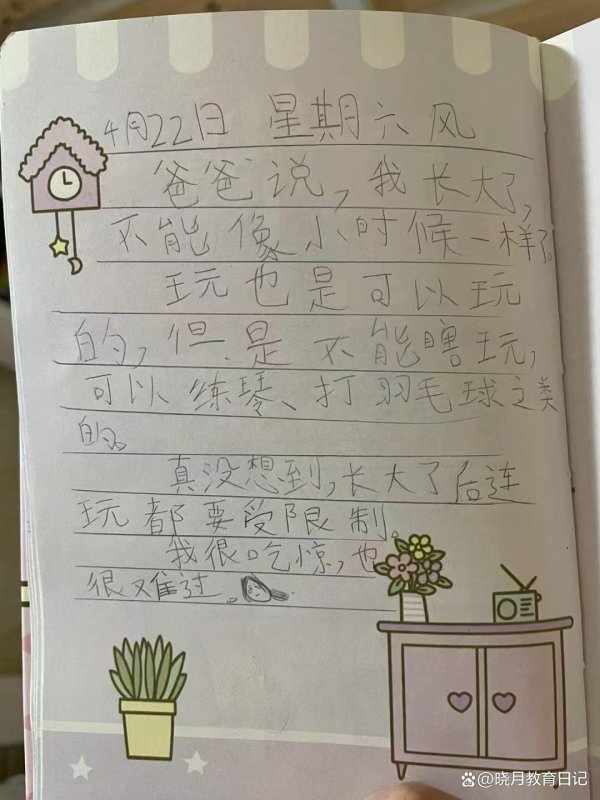 4月22日 星期六 风
爸爸说，我长大了，
不能像小时候一样了。
玩也是可以玩
的，但是不能瞎玩，
可以练琴、打羽毛球之类
的。
真没想到，长大了后连
玩都要受限制。
我很吃惊，也
很难过。
@晓月教育日记